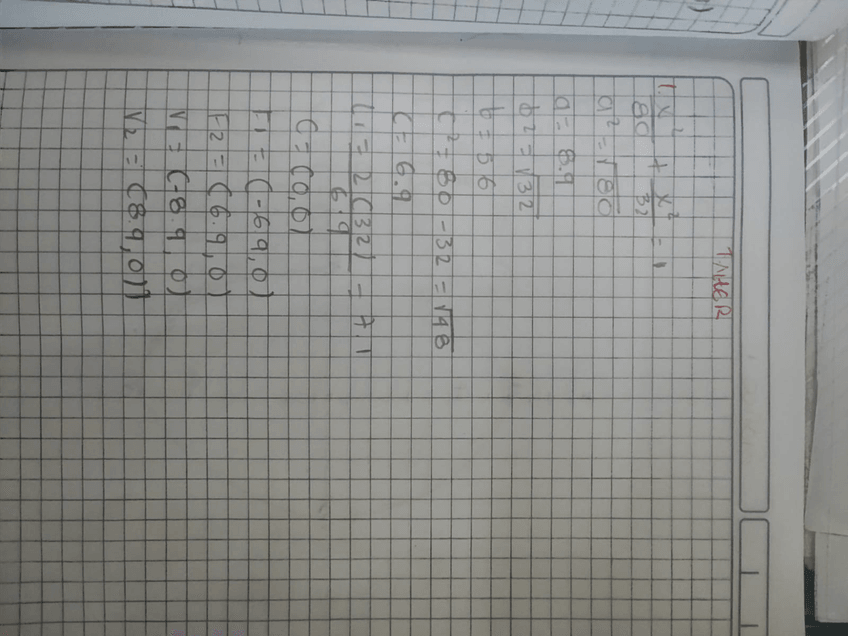 TALLER
1. x²/80 + x²/32 = 1
a² = √80
a = 8.9
b² = √32
b = 5.6
c² = 80 - 32 = √48
c = 6.9
L1 = 2(32)/6.9 = 7.1
C = (0,0)
F1 = (-6.9,0)
F2 = (6.9,0)
V1 = (-8.9,0)
V2 = (8.9,0)